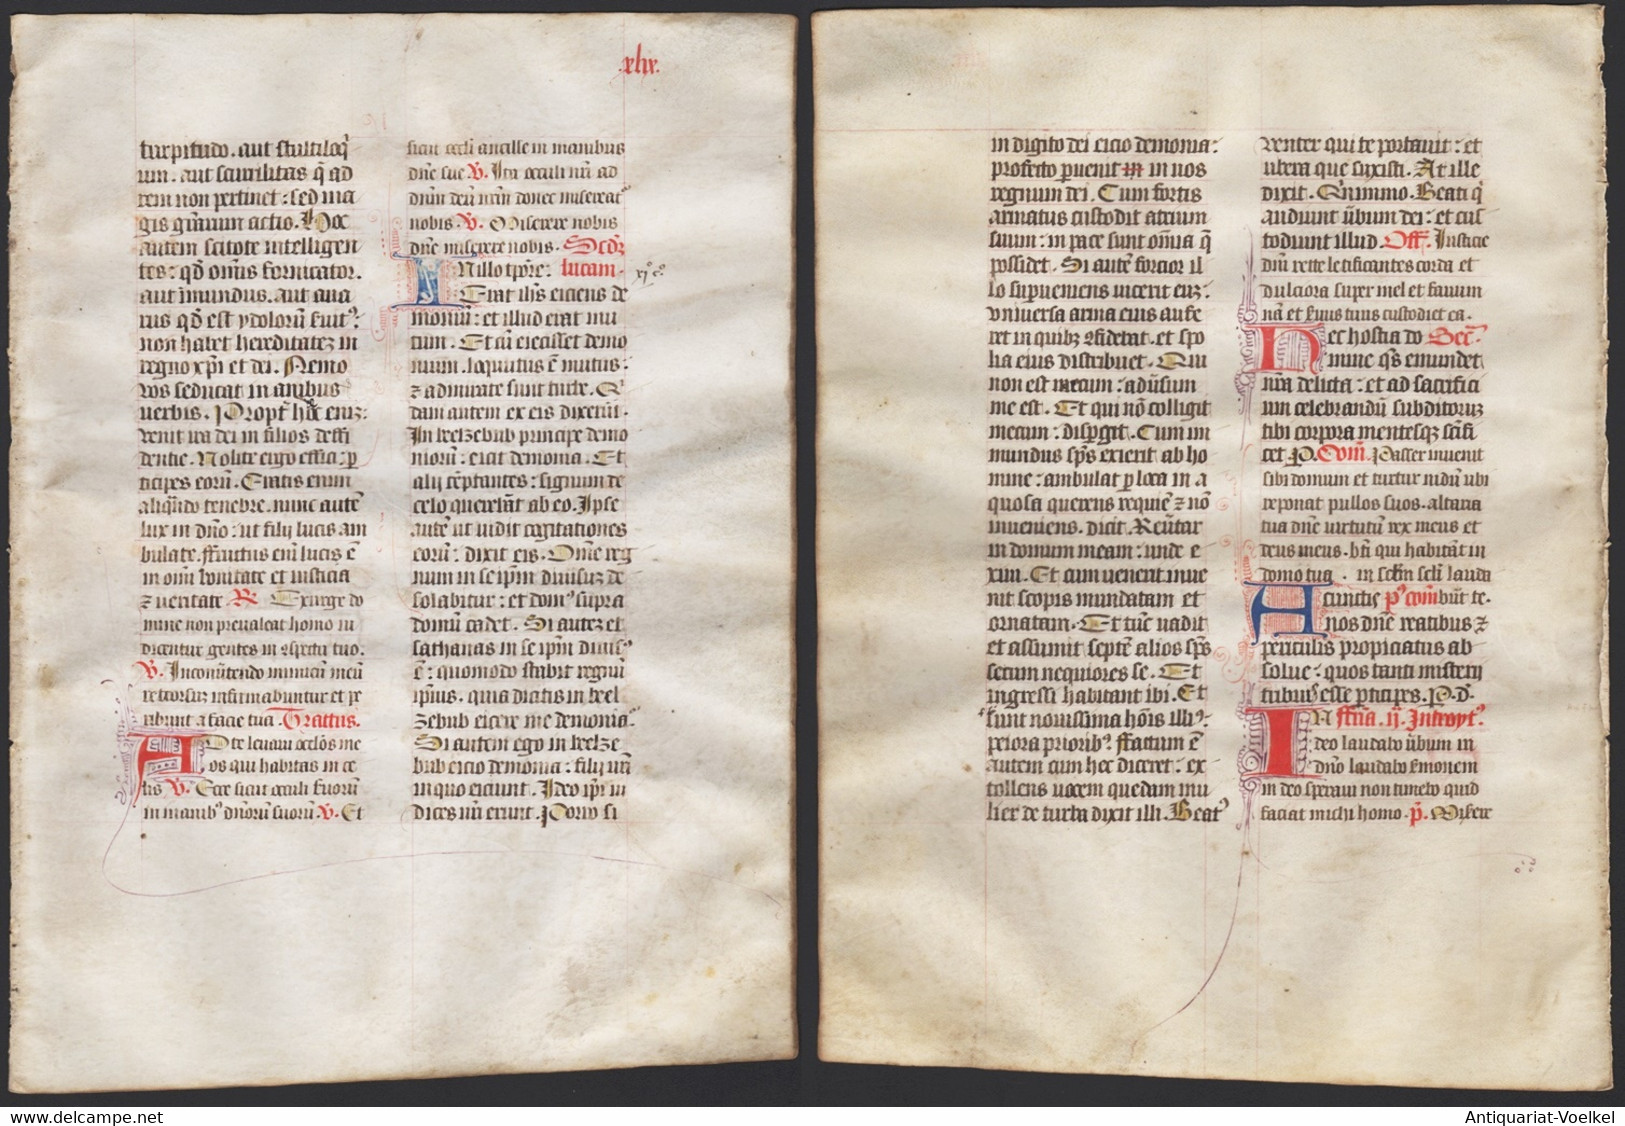 .xlix.
turpitudo. aut stultiloq̇
um. aut scurrilitas q̄ ad
rem non pertinet: sed ma
gis gr̄arum actio. Hoc
autem scitote intelligen
tes: qd̄ om̄is fornicator.
aut īmundus. aut aua
rus qd̄ est ydolorū ſuitꝰ:
non habet hereditatez in
regno xp̄i et dei. Nemo
vos seducat in anibus
uerbis. Propt̄ hec eniz:
venit ira dei in filios diffi
dentie. Nolite ergo effici: p̱
ticipes eorū. Eratis enim
aliqn̄do tenebre. nunc autē
lux in dn̄o: ut filij lucis am
bulate. ffructus enī lucis ē
in om̄i bonitate et iusticia
⁊ ueritate ℟. Exurge do
mine non preualeat homo iu
dicentur gentes in ɔspectu tuo.
℣. In conūtendo inimicū meū
retrorsuz infirmabuntur et pe
ribunt a facie tua. Tractus.
Ad te leuaui oc̄lōs me
os qui habitas in ce
lis ℣. Ecce sicut oculi ſuorū
in manibꝰ dn̄orū suorū. ℣. Et
sicut oc̄li ancille in manibus
dn̄e sue ℣. Ita oculi nr̄i ad
dn̄m deū nr̄m donec misereatꝰ
nobis. ℣. Miserere nobis
dn̄e miserere nobis. Scd̄z
In illo tp̄re: lucam.
Erat ih̄s eiciens de
moniū: et illud erat mu
tum. Et cū eiecisset demo
nium. loqutus ē mutus:
⁊ admirate sunt turbe. Q̇
dam autem ex eis dixerūt.
In beelzebub principe demo
niorū: eicit demonia. Et
alij tēptantes: signum de
celo querebāt ab eo. Ipse
autē ut uidit cogitationes
eorū: dixit eis. Om̄e reg
num in se ip̄m diuisuz de
solabitur: et domꝰ supra
domū cadet. Si autez et
sathanas in se ip̄m diuisꝰ
ē: quomodo stabit regnū
ipīus. quia dicitis in beel
zebub eicere me demonia.
Si autem ego in beelze
bub eicio demonia: filij ur̄i
in quo eiciunt. Ideo ip̄i iu
dices ur̄i erunt. Porro si
xjº cº
in digito dei eicio demonia:
profecto puenit in nos
regnum dei. Cum fortis
armatus custodit atrium
suum: in pace sunt om̄ia q̄
possidet. Si autē forcior il
lo supueniens uicerit euz:
vniuersa arma eius aufe
ret in quibz ɔfidebat. et spo
lia eius distribuet. Qui
non est mecum: adūsum
me est. Et qui nō colligit
mecum: dispgit. Cum im
mundus sp̄s exierit ab ho
mine: ambulat p loca in a
quosa querens requiē ⁊ nō
inueniens. dicit. Reūtar
in domum meam: unde e
xiui. Et cum uenerit inue
nit scopis mundatam et
ornatam. Et tūc uadit
et assumit septē alios sp̄s
secum nequiores se. Et
ingressi habitant ibi. Et
fiunt nouissima hōis illiꝰ:
peiora prioribꝰ. ffactum ē
autem cum hec diceret: ex
tollens uocem quedam mu
lier de turba dixit illi. Beatꝰ
venter qui te portauit: et
ubera que suxisti. At ille
dixit. Qūimmo. Beati q̇
audiunt ūbum dei: et cus
todiunt illud. Off. Iusticie
dn̄i recte letificantes corda et
dulciora super mel et fauum
nā et ſuus tuus custodiet ea.
Hec hostia do Sec̄.
mine qs̄ emundet
nr̄a delicta: et ad sacrifici
um celebrandū subditoruz
tibi corpora mentesqz scīfi
cet P. Com̄. Passer inuenit
sibi domum et turtur nidū ubi
reponat pullos suos. altaria
tua dn̄e uirtutū rex meus et
deus meus. bt̄i qui habitāt in
domo tua. in sclm scli lauda
A cunctis pꝰ com̄ būt te.
nos dn̄e reatibus ⁊
periculis propiciatus ab
solue: quos tanti misterij
tribuisꝰ esse pticipes. P. D.
In ffr̄ia. ij. Introytꝰ.
deo laudabo ūbum in
dn̄o laudabo sermonem
in deo speraui non timebo quid
faciat michi homo. p̄. Misere
www.delcampe.net
Antiquariat-Voelkel